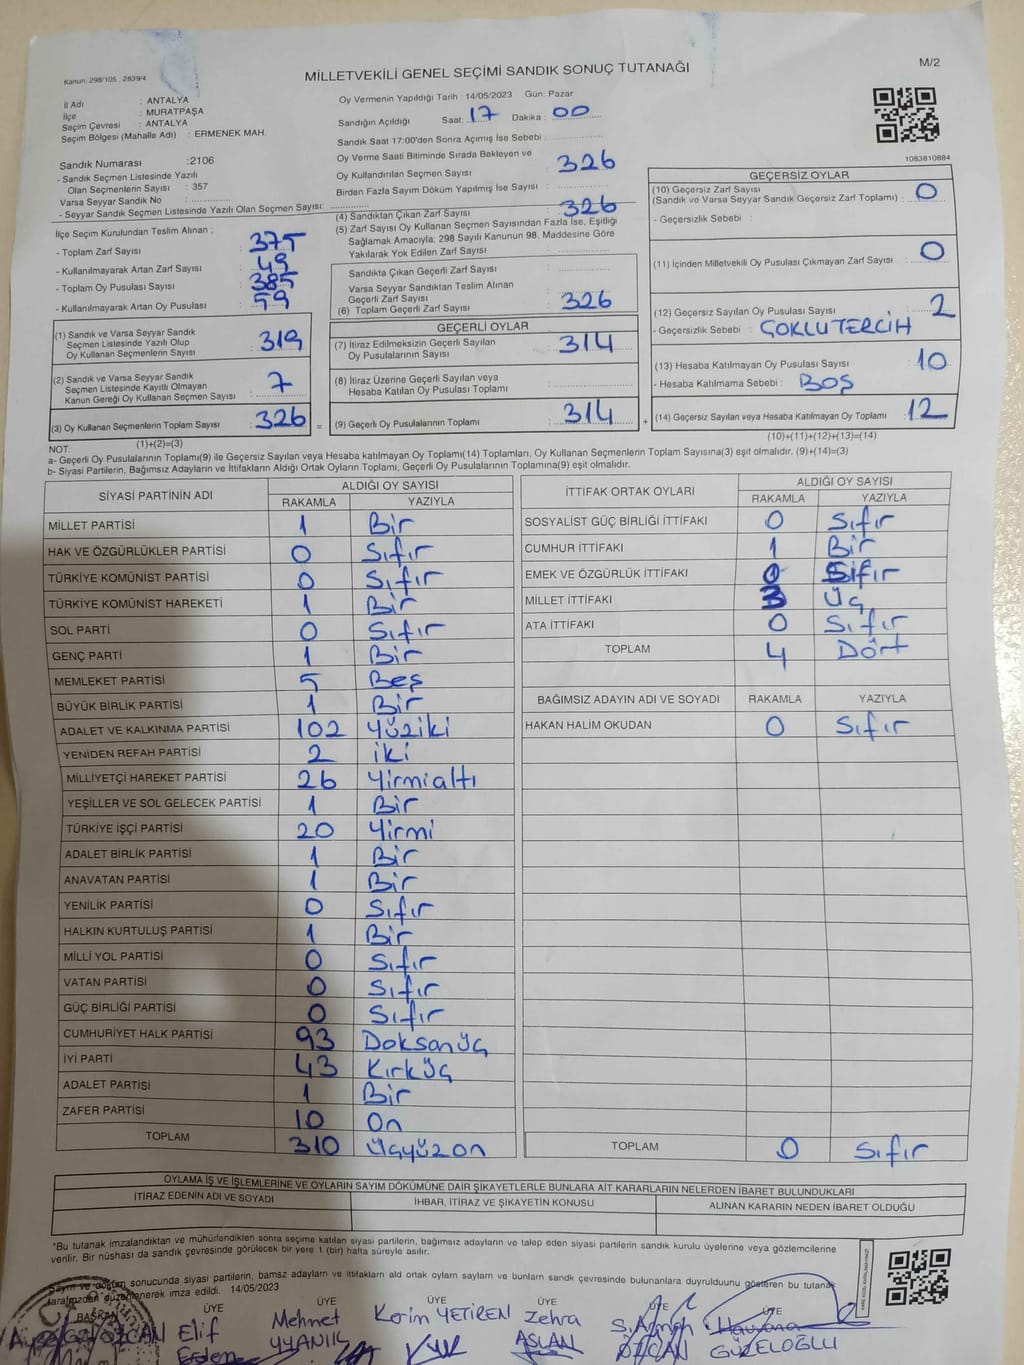 Kanun: 298/105 , 2839/4
MİLLETVEKİLİ GENEL SEÇİMİ SANDIK SONUÇ TUTANAĞI
M/2
İl Adı : ANTALYA
İlçe : MURATPAŞA
Seçim Çevresi : ANTALYA
Seçim Bölgesi (Mahalle Adı) : ERMENEK MAH.
Sandık Numarası :2106
- Sandık Seçmen Listesinde Yazılı
Olan Seçmenlerin Sayısı : 357
Varsa Seyyar Sandık No :
- Seyyar Sandık Seçmen Listesinde Yazılı Olan Seçmen Sayısı:
İlçe Seçim Kurulundan Teslim Alınan ;
- Toplam Zarf Sayısı : 375
- Kullanılmayarak Artan Zarf Sayısı : 49
- Toplam Oy Pusulası Sayısı : 385
- Kullanılmayarak Artan Oy Pusulası : 59
(1) Sandık ve Varsa Seyyar Sandık
Seçmen Listesinde Yazılı Olup
Oy Kullanan Seçmenlerin Sayısı : 319
(2) Sandık ve Varsa Seyyar Sandık
Seçmen Listesinde Kayıtlı Olmayan
Kanun Gereği Oy Kullanan Seçmen Sayısı : 7
(3) Oy Kullanan Seçmenlerin Toplam Sayısı : 326
(1)+(2)=(3)
Oy Vermenin Yapıldığı Tarih : 14/05/2023 Gün: Pazar
Sandığın Açıldığı Saat: 17 Dakika : 00
Sandık Saat 17:00'den Sonra Açımış İse Sebebi :
Oy Verme Saati Bitiminde Sırada Bekleyen ve
Oy Kullandırılan Seçmen Sayısı : 326
Birden Fazla Sayım Döküm Yapılmış İse Sayısı :
(4) Sandıktan Çıkan Zarf Sayısı : 326
(5) Zarf Sayısı Oy Kullanan Seçmen Sayısından Fazla İse, Eşitliği
Sağlamak Amacıyla; 298 Sayılı Kanunun 98. Maddesine Göre
Yakılarak Yok Edilen Zarf Sayısı :
Sandıkta Çıkan Geçerli Zarf Sayısı :
Varsa Seyyar Sandıktan Teslim Alınan
Geçerli Zarf Sayısı :
(6) Toplam Geçerli Zarf Sayısı : 326
GEÇERLİ OYLAR
(7) İtiraz Edilmeksizin Geçerli Sayılan
Oy Pusulalarının Sayısı : 314
(8) İtiraz Üzerine Geçerli Sayılan veya
Hesaba Katılan Oy Pusulası Toplamı :
= (9) Geçerli Oy Pusulalarının Toplamı : 314 +
1083810884
GEÇERSİZ OYLAR
(10) Geçersiz Zarf Sayısı
(Sandık ve Varsa Seyyar Sandık Geçersiz Zarf Toplamı) : 0
- Geçersizlik Sebebi :
(11) İçinden Milletvekili Oy Pusulası Çıkmayan Zarf Sayısı : 0
(12) Geçersiz Sayılan Oy Pusulası Sayısı : 2
- Geçersizlik Sebebi : ÇOKLUTERCİH
(13) Hesaba Katılmayan Oy Pusulası Sayısı : 10
- Hesaba Katılmama Sebebi : BOŞ
(14) Geçersiz Sayılan veya Hesaba Katılmayan Oy Toplamı : 12
(10)+(11)+(12)+(13)=(14)
NOT:
a- Geçerli Oy Pusulalarının Toplamı(9) ile Geçersiz Sayılan veya Hesaba katılmayan Oy Toplamı(14) Toplamları, Oy Kullanan Seçmenlerin Toplam Sayısına(3) eşit olmalıdır. (9)+(14)=(3)
b- Siyasi Partilerin, Bağımsız Adayların ve İttifakların Aldığı Ortak Oyların Toplamı, Geçerli Oy Pusulalarının Toplamına(9) eşit olmalıdır.
SİYASİ PARTİNİN ADI ALDIĞI OY SAYISI
RAKAMLA YAZIYLA
MİLLET PARTİSİ 1 Bir
HAK VE ÖZGÜRLÜKLER PARTİSİ 0 Sıfır
TÜRKİYE KOMÜNİST PARTİSİ 0 Sıfır
TÜRKİYE KOMÜNİST HAREKETİ 1 Bir
SOL PARTİ 0 Sıfır
GENÇ PARTİ 1 Bir
MEMLEKET PARTİSİ 5 Beş
BÜYÜK BİRLİK PARTİSİ 1 Bir
ADALET VE KALKINMA PARTİSİ 102 Yüziki
YENİDEN REFAH PARTİSİ 2 iki
MİLLİYETÇİ HAREKET PARTİSİ 26 Yirmialtı
YEŞİLLER VE SOL GELECEK PARTİSİ 1 Bir
TÜRKİYE İŞÇİ PARTİSİ 20 Yirmi
ADALET BİRLİK PARTİSİ 1 Bir
ANAVATAN PARTİSİ 1 Bir
YENİLİK PARTİSİ 0 Sıfır
HALKIN KURTULUŞ PARTİSİ 1 Bir
MİLLİ YOL PARTİSİ 0 Sıfır
VATAN PARTİSİ 0 Sıfır
GÜÇ BİRLİĞİ PARTİSİ 0 Sıfır
CUMHURİYET HALK PARTİSİ 93 Doksanüç
İYİ PARTİ 43 Kırküç
ADALET PARTİSİ 1 Bir
ZAFER PARTİSİ 10 On
TOPLAM 310 Üçyüzon
İTTİFAK ORTAK OYLARI ALDIĞI OY SAYISI
RAKAMLA YAZIYLA
SOSYALİST GÜÇ BİRLİĞİ İTTİFAKI 0 Sıfır
CUMHUR İTTİFAKI 1 Bir
EMEK VE ÖZGÜRLÜK İTTİFAKI 0 Sıfır
MİLLET İTTİFAKI 3 Üç
ATA İTTİFAKI 0 Sıfır
TOPLAM 4 Dört
BAĞIMSIZ ADAYIN ADI VE SOYADI RAKAMLA YAZIYLA
HAKAN HALİM OKUDAN 0 Sıfır
TOPLAM 0 Sıfır
OYLAMA İŞ VE İŞLEMLERİNE VE OYLARIN SAYIM DÖKÜMÜNE DAİR ŞİKAYETLERLE BUNLARA AİT KARARLARIN NELERDEN İBARET BULUNDUKLARI
İTİRAZ EDENİN ADI VE SOYADI İHBAR, İTİRAZ VE ŞİKAYETİN KONUSU ALINAN KARARIN NEDEN İBARET OLDUĞU
*Bu tutanak imzalandıktan ve mühürlendikten sonra seçime katılan siyasi partilerin, bağımsız adayların ve talep eden siyasi partilerin sandık kurulu üyelerine veya gözlemcilerine
verilir. Bir nüshası da sandık çevresinde görülecek bir yere 1 (bir) hafta süreyle asılır.
Sayım ve döküm sonucunda siyasi partilerin, bamsz adayların ve ittifakların ald ortak oyların saylam ve bunların sandk çevresinde bulunanlara duyrulduunu gösteren bu tutanak
tarafımzdan düzenlenerek imza edildi. 14/05/2023
BAŞKAN ÜYE ÜYE ÜYE ÜYE ÜYE ÜYE
ÖZCAN Elif Mehmet Kerim YETİREN Zehra
Erdem UYANIK ASLAN ÖZCAN GÜZELOĞLU